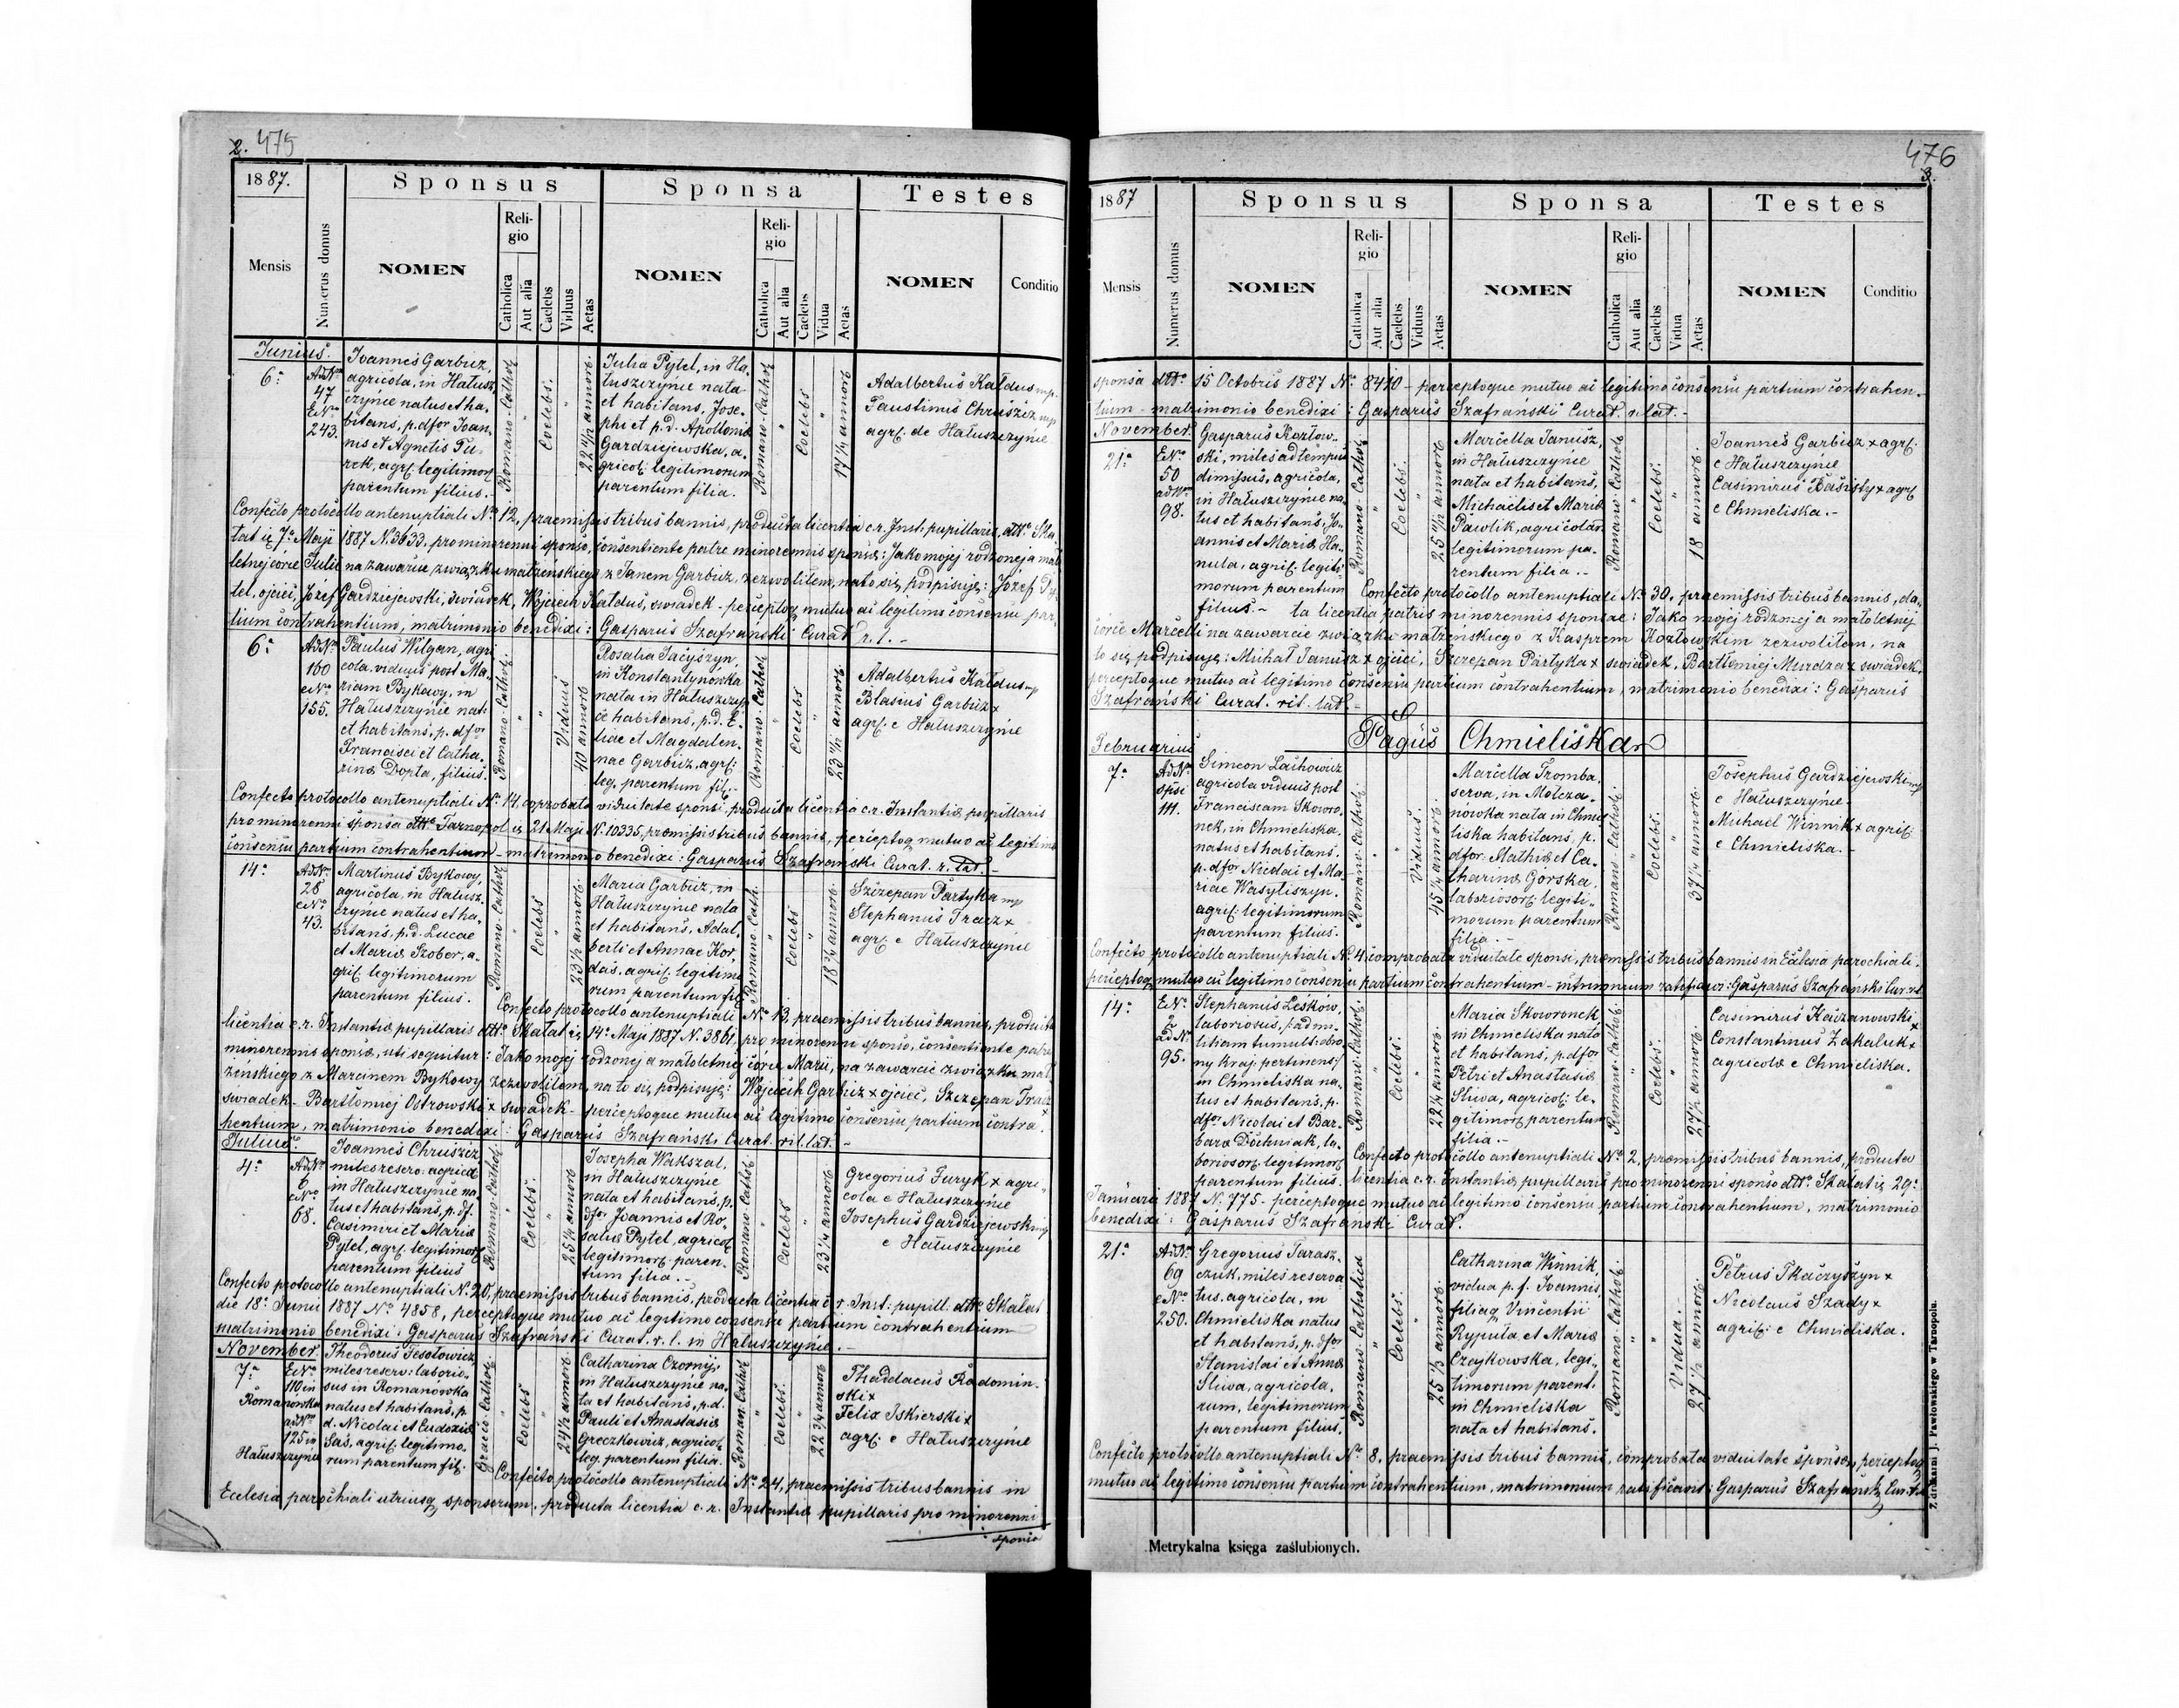 2. 475
1887.
Sponsus
Sponsa
Testes
Mensis
Numerus domus
NOMEN
Religio
Catholica
Aut alia
Caelebs
Viduus
Aetas
NOMEN
Religio
Catholica
Aut alia
Caelebs
Vidua
Aetas
NOMEN
Conditio
Junius.
6ª
AdNrm
47
ENo
243.
Joannes Garbuz,
agricola, in Hałusz-
czynie natus et ha-
bitans, p. dfor Joan-
nis et Agnetis Tu-
rek, agrf. legitimor
parentum filius.
Romano-Cathol
"
Coelebs.
"
22 11/12 annorō
Julia Pytel, in Ha-
łuszczynie nata
et habitans, Jose-
phi et p.d. Apollonia
Gardziejewska, a-
gricol: legitimorum
parentum filia.
Romano-Cathol
"
Coelebs
"
17 1/4 annorō
Adalbertus Kałdus mp.
Faustinus Chruścicz mp
agrf. de Hałuszczynie
Confecto protocollo antenuptiali No 12, praemissis tribus bannis, producta licentia c.r. Inst. pupillaris, dtto Ska-
łat ię 7ª Maji 1887 N. 3633, pro minorenni sponso, consentiente patre minorennis sponsa: Jako mojej rodzonej a mało
letniej córce Julii na zawarcie związku małżeńskiego z Janem Garbuz, zezwoliłem, na to się podpisuję: Józef Py-
tel, ojciec, Józef Gardziejewski, świadek, Wojciech Kałdus, świadek - perceptoq mutuo ac legitimo consensu par-
tium contrahentium, matrimonio benedixi: Gasparus Szafrański Curat r. l. -
6ª
AdNo
160
eNo
155.
Paulus Wilgan, agri
cola, viduus post Ma-
riam Bykowy, in
Hałuszczynie nat:
et habitans, p. dfor
Francisci et Catha-
rina Dopta, filius.
Romano-Cathol:
"
"
Viduus
40 annorō
Rosalia Jaćyszyn,
in Konstantynówka
nata in Hałuszczyn
ie habitans, p.d. E-
liae et Magdalen-
nae Garbuz, agrf:
leg. parentum fil:
Romano-Cathol
"
Coelebs
"
23 11/12 annorō
Adalbertus Kałdus mp
Blasius Garbuz x
agrf. e Hałuszczynie
Confecto protocollo antenuptiali No 14, coprobata viduitate sponsi, producta licentia c.r. Instantia pupillaris
pro minorenni sponsa dtto Tarnopol ię 21 Maji N. 10335, praemissis tribus bannis, perceptoq mutuo ac legitimo
consensu partium contrahentium - matrimonio benedixi: Gasparus Szafrański Curat. r. lat. -
14ª
AdNo
28
eNo
43.
Martinus Bykowy,
agricola, in Hałusz-
czynie natus et ha-
bitans, p.d. Lucae
et Maria Szober, a-
grif. legitimorum
parentum filius.
Romano-Cathol
"
Coelebs
"
23 1/2 annorō
Maria Garbuz, in
Hałuszczynie nata
et habitans, Adal-
berti et Annae Kor-
das, agrif. legitimo
rum parentum fil
Romano-Cath.
"
Coelebs
"
18 3/4 annorō
Szczepan Partyka mp
Stephanus Tracz x
agrf. e Hałuszczynie
Confecto protocollo antenuptiali No 13, praemissis tribus bannis, producta
licentia c.r. Instantia pupillaris dtto Skałat ię 14ª Maji 1887 N. 3861, pro minorenni sponso, consentiente patre
minorennis sponsa, uti sequitur: Jako mojej rodzonej a małoletniej córce Marii, na zawarcie związku mał-
żeńskiego z Marcinem Bykowy zezwoliłem, na to się podpisuję: Wojciech Garbuz x ojciec, Szczepan Tracz x
świadek - Bartłomiej Ostrowski x świadek - perceptoque mutuo ac legitimo consensu partium contra-
hentium, matrimonio benedixi: Gasparus Szafrański Curat. rit. lat. -
Julius.
4ª
AdNo
6
eNo
68.
Joannes Chruścicz
miles reserv: agricol
in Hałuszczynie na-
tus et habitans, p. df.
Casimiri et Maria
Pytel, agrf. legitimor
parentum filius
Romano-Cathol
"
Coelebs.
"
25 1/4 annorō
Josepha Wakszal,
in Hałuszczynie
nata et habitans, p.
dfor Joannis et Ro-
salia Pytel, agricol
legitimorō paren-
tum filia. -
Romano-Cathol
"
Coelebs
"
23 1/4 annorō
Gregorius Furyk x agri-
cola e Hałuszczynie
Josephus Gardziejewski mp
e Hałuszczynie
Confecto protocollo antenuptiali N. 20, praemissis tribus bannis, producta licentia c r. Inst: pupill. dtto Skałat
die 18ª Junii 1887 No 4858, perceptoque mutuo ac legitimo consensu partium contrahentium
matrimonio benedixi: Gasparus Szafrański Curat. r. l. in Hałuszczynie. -
November.
7ª
ENo
110 in
Romanówka
adNm
125 in
Hałuszczynie
Theodorus Tesołowicz
miles reserv: laborio-
sus in Romanówka
natus et habitans, p.
d. Nicolai et Eudoxia
Sas, agrif. legitimo-
rum parentum fil.
Graeco-Cathol
"
Coelebs
"
24 1/2 annorō
Catharina Czornyj,
in Hałuszczynie na-
ta et habitans, p.d.
Pauli et Anastasia
Greczkowicz, agricol
leg. parentum filia.
Roman. Cathol
"
Coelebs.
"
22 3/4 annorō
Thaddaeus Radomin-
ski x
Felix Iskierski x
agrf. e Hałuszczynie
Confecto protocollo antenuptiali No 24, praemissis tribus bannis in
Ecclesia parochiali utriusq sponsorum, producta licentia c.r. Instantia pupillaris pro minorenni
sponso
476
3.
1887
Sponsus
Sponsa
Testes
Mensis
Numerus domus
NOMEN
Religio
Catholica
Aut alia
Caelebs
Viduus
Aetas
NOMEN
Religio
Catholica
Aut alia
Caelebs
Vidua
Aetas
NOMEN
Conditio
sponsa dtto 15 Octobris 1887 No 8410 - perceptoque mutuo ac legitimo consensu partium contrahen-
tium - matrimonio benedixi: Gasparus Szafrański Curat. r. lat. -
November.
21ª
ENo
50
adNm
98.
Gasparus Kozłow-
ski, miles ad tempus
dimissus, agricola,
in Hałuszczynie na-
tus et habitans, Jo-
annis et Maria Ha-
nula, agrif. legiti-
morum parentum
filius. -
Romano-Cathol
"
Coelebs.
"
25 11/12 annorō
Marcella Janusz,
in Hałuszczynie
nata et habitans,
Michaelis et Maria
Pawlik, agricolar
legitimorum pa-
rentum filia. -
Romano-Cathol
"
Coelebs.
"
18 annorō.
Joannes Garbuz x agrf.
e Hałuszczynie
Casimirus Basisty x agrf
e Chmieliska. -
Confecto protocollo antenuptiali No 30, praemissis tribus bannis, da-
ta licentia patris minorennis sponsae: Jako mojej rodzonej a małoletniej
córce Marcelli na zawarcie związku małżeńskiego z Kasprem Kozłowskim zezwoliłem, na
to się podpisuję: Michał Janusz x ojciec, Szczepan Partyka x świadek, Bartłomiej Murdza x świadek,
perceptoque mutuo ac legitimo consensu partium contrahentium, matrimonio benedixi: Gasparus
Szafrański Curat. rit. lat. -
Pagus Chmieliska
Februarius
7ª
AdNo
Spsi
111.
Simeon Lachowicz
agricola viduus post
Franciscam Skowro-
nek, in Chmieliska
natus et habitans,
p. dfor Nicolai et Ma-
riae Wasyliszyn,
agrif. legitimorum
parentum filius.
Romano-Cathol.
"
"
Viduus.
45 1/4 annorō
Marcella Tromba,
serva, in Mołcza-
nówka nata in Chmie
liska habitans, p.
dfor. Mathia et Ca-
tharina Gorska,
laboriosorō legiti-
morum parentum
filia. -
Romano-Cathol:
"
Coelebs.
"
37 1/4 annorō
Josephus Gardziejewski mp
e Hałuszczynie.
Michael Winnik x agrif.
e Chmieliska.
Confecto protocollo antenuptiali No 4, comprobata viduitate sponsi, praemissis tribus bannis in Ecclesia parochiali.
perceptoq mutuo ac legitimo consensu partium contrahentium - mtrmonium ratificavi: Gasparus Szafrański Cur. r.l
14ª
ENo
2
adNo
95.
Stephanus Leśków,
laboriosus, /: ad mi-
litiam tumult: obro-
ny kraj. pertinens :/
in Chmieliska na-
tus et habitans, p.
dfor Nicolai et Bar-
bara Dochniak, la-
boriosorō legitimorō
parentum filius.
Romano-Cathol.
"
Coelebs.
"
22 1/4 annorō
Maria Skowronek
in Chmieliska nata
et habitans, p. dfor
Petri et Anastasia
Śliwa, agricol: le-
gitimorō parentum
filia. -
Romano-Cathol.
"
Coelebs.
"
27 1/2 annorō
Casimirus Kaczanowski x
Constantinus Zakaluk x
agricola e Chmieliska.
Confecto protocollo antenuptiali No 2, praemissis tribus bannis, producta
licentia c.r. Instantia pupillaris pro minorenni sponso dtto Skałat ię 29ª
Januarii 1887 N. 775 - perceptoque mutuo ac legitimo consensu partium contrahentium, matrimonio
benedixi: Gasparus Szafrański Curat.
21ª
AdNo
69
eNo
250.
Gregorius Tarasz-
czuk, miles reserva
tus, agricola, in
Chmieliska natus
et habitans, p. dfor
Stanislai et Anna
Śliwa, agricola-
rum, legitimorum
parentum filius.
Romano-Catholica
"
Coelebs.
"
25 1/3 annorō.
Catharina Winnik,
vidua p. f. Joannis,
filiaq Vincentii
Rypuła et Maria
Czeykowska, legi-
timorum parent.
in Chmieliska
nata et habitans.
Romano-Cathol.
"
"
Vidua.
27 1/2 annorō.
Petrus Tkaczyszyn x
Nicolaus Szady x
agrif: e Chmieliska.
Confecto protocollo antenuptiali No 8, praemissis tribus bannis, comprobata viduitate sponsa, perceptoq
mutuo ac legitimo consensu partium contrahentium, matrimonium ratificavi: Gasparus Szafrański Cur. r.l
Metrykalna księga zaślubionych.
Z drukarni J. Pawłowskiego w Tarnopolu.